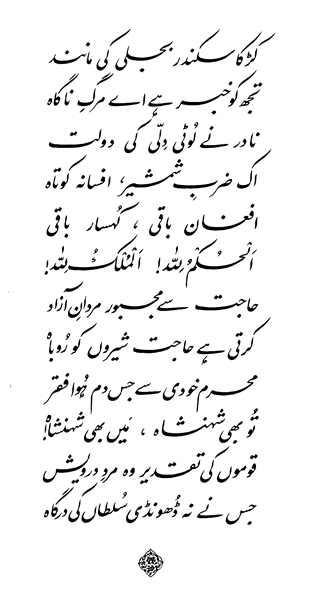 کڑکا سکندر بجلی کی مانند
تجھ کو خبر ہے اے مرگِ ناگاہ
نادر نے لُوٹی دِلّی کی دولت
اک ضربِ شمشیر، افسانہ کوتاہ
افغان باقی، کُہسار باقی
اَلْحُکْمُ لِلّٰہ! اَلْمُلْکُ لِلّٰہ!
حاجت سے مجبور مردانِ آزاد
کرتی ہے حاجت شیروں کو رُوباہ
محرم خودی سے جس دم ہُوا فقر
تُو بھی شہنشاہ، مَیں بھی شہنشاہ!
قوموں کی تقدیر وہ مردِ درویش
جس نے نہ ڈھونڈی سُلطاں کی درگاہ